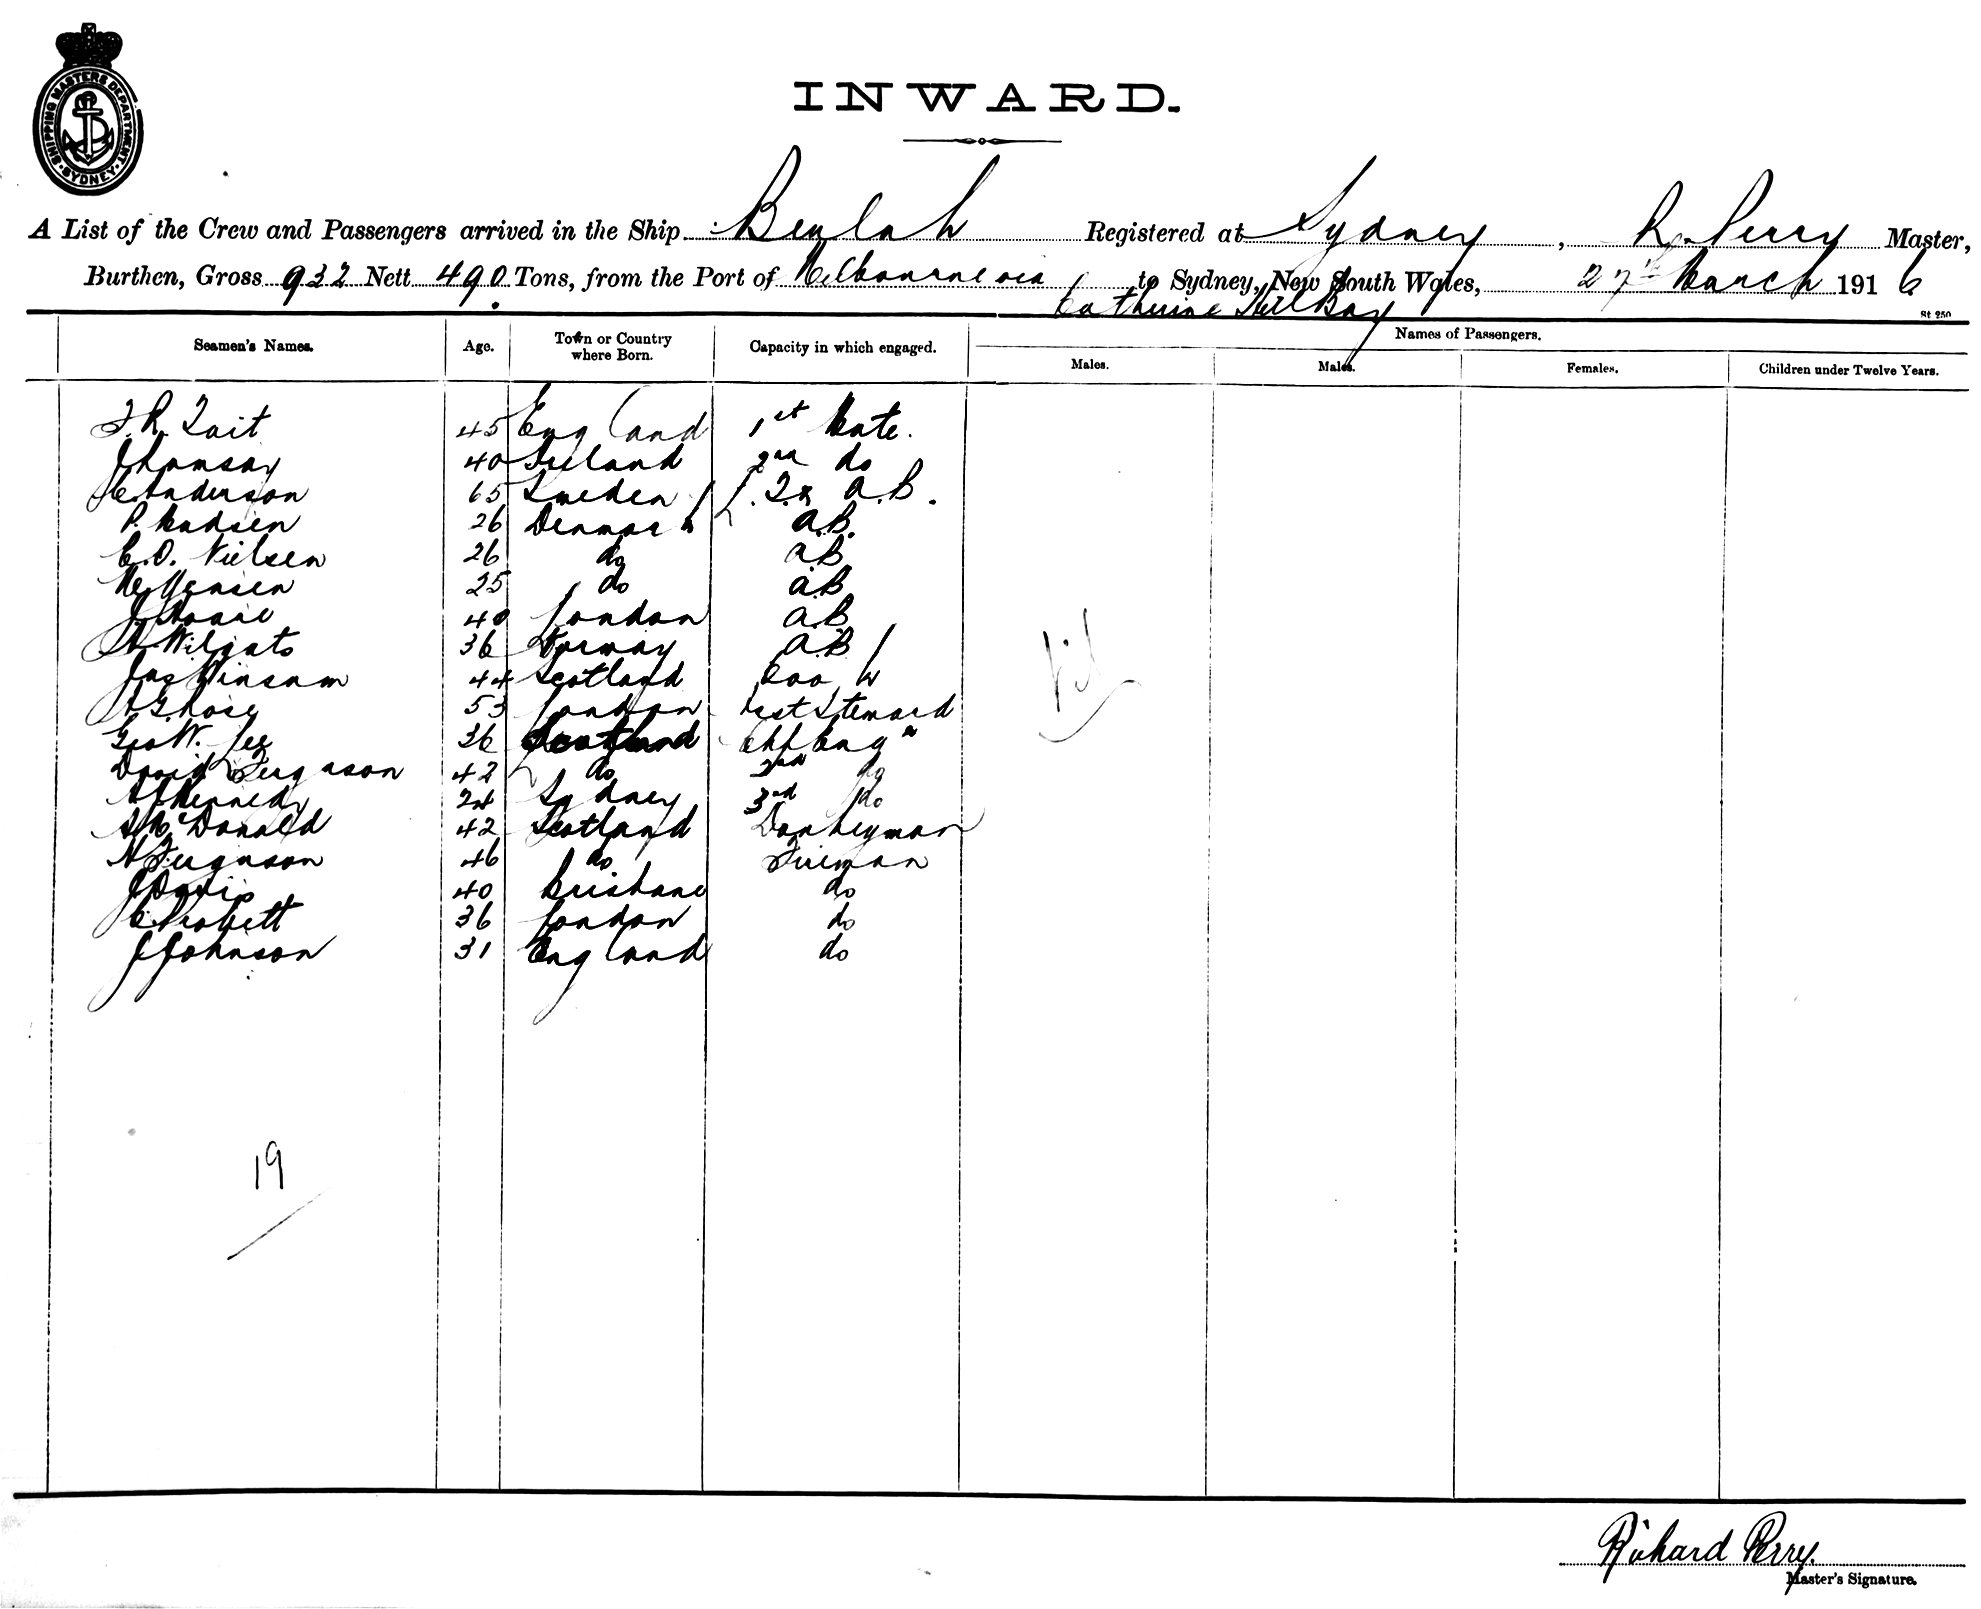 SHIPPING MASTERS DEPARTMENT · SYDNEY ·
INWARD.
A List of the Crew and Passengers arrived in the Ship Beulah Registered at Sydney, R. Perry Master,
Burthen, Gross 932 Nett 490 Tons, from the Port of Melbourne via Catherine Hill Bay to Sydney, New South Wales, 27th March 1916
St 250
Seamen's Names. Age. Town or Country where Born. Capacity in which engaged. Names of Passengers.
Males. Males. Females. Children under Twelve Years.
F. R. Tait 45 England 1st Mate.
J Ramsay 40 Ireland 2nd do
C Anderson 65 Sweden L. T. & A.B.
P. Madsen 26 Denmark A.B.
C. O. Nielsen 26 do A.B
M Jensen 25 do A.B
J 40 London A.B
A. 36 Norway A.B
Jas Winsam 44 Scotland Cook
A G Rose 53 London Steward
Geo W. Lee 36 Scotland Chf Eng"
David Ferguson 42 do 2nd do
A Kennedy 24 Sydney 3rd do
McDonald 42 Scotland Donkeyman
A Ferguson 46 do Fireman
J Davis 40 Brisbane do
C Probett 36 London do
J Johnson 31 England do
Nil
19
Richard Perry.
Master's Signature.